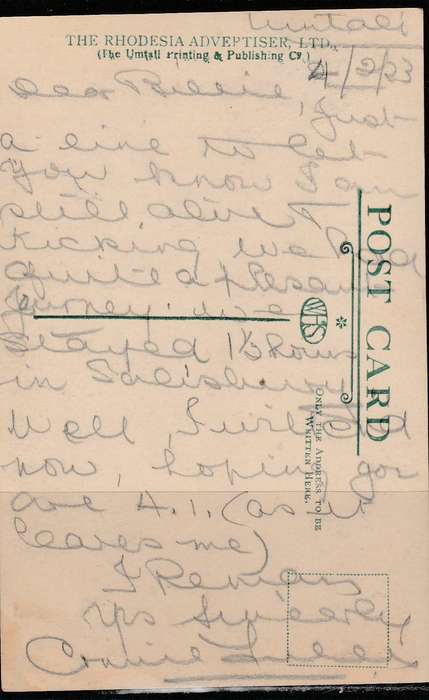 Umtali
THE RHODESIA ADVERTISER, LTD.,
(The Umtali Printing & Publishing Co.)
4/2/23
Dear Billie, Just
a line to let
you know I am
still alive &
kicking we had
quite a plesant
journey. we
stayed 1½ hours
in Salisbury
Well, I will end
now, hoping you
are A.1. (as it
leaves me)
I Remain
Yrs Sincerly
Connie
POST CARD
WHS
ONLY THE ADDRESS TO BE
WRITTEN HERE.